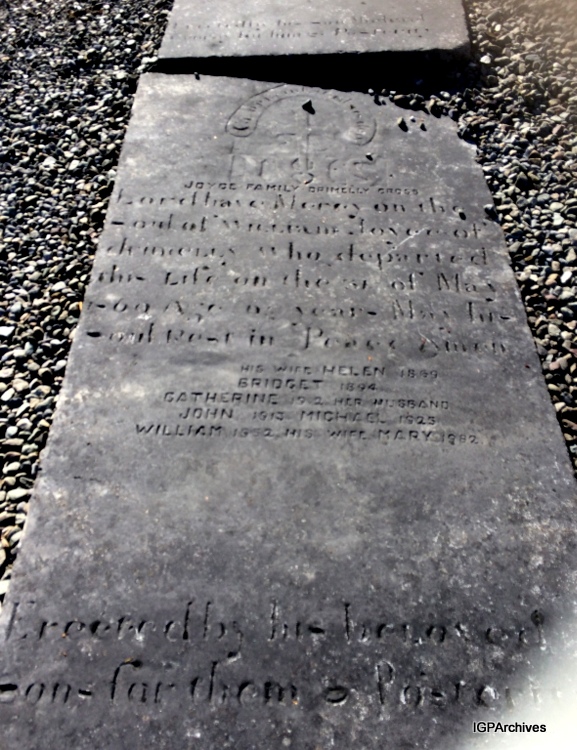 Erected by his son Michael
IHS
JOYCE FAMILY DRIMELLY CROSS
Lord have Mercy on the
soul of William Joyce of
who departed
this Life on the of May
Age years May his
soul Rest in Peace Amen
HIS WIFE HELEN 1899
BRIDGET 1894
CATHERINE 1912 HER HUSBAND
JOHN 1913 MICHAEL 1925
WILLIAM 1952 HIS WIFE MARY 1982
Erected by his beloved
sons for them &
IGPArchives